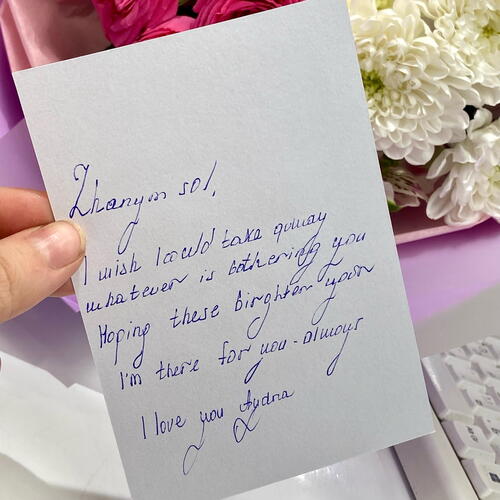 Zhanym sol,
I wish I could take away
whatever is bothering you
Hoping these birghten your
I'm there for you - always
I love you Aydna